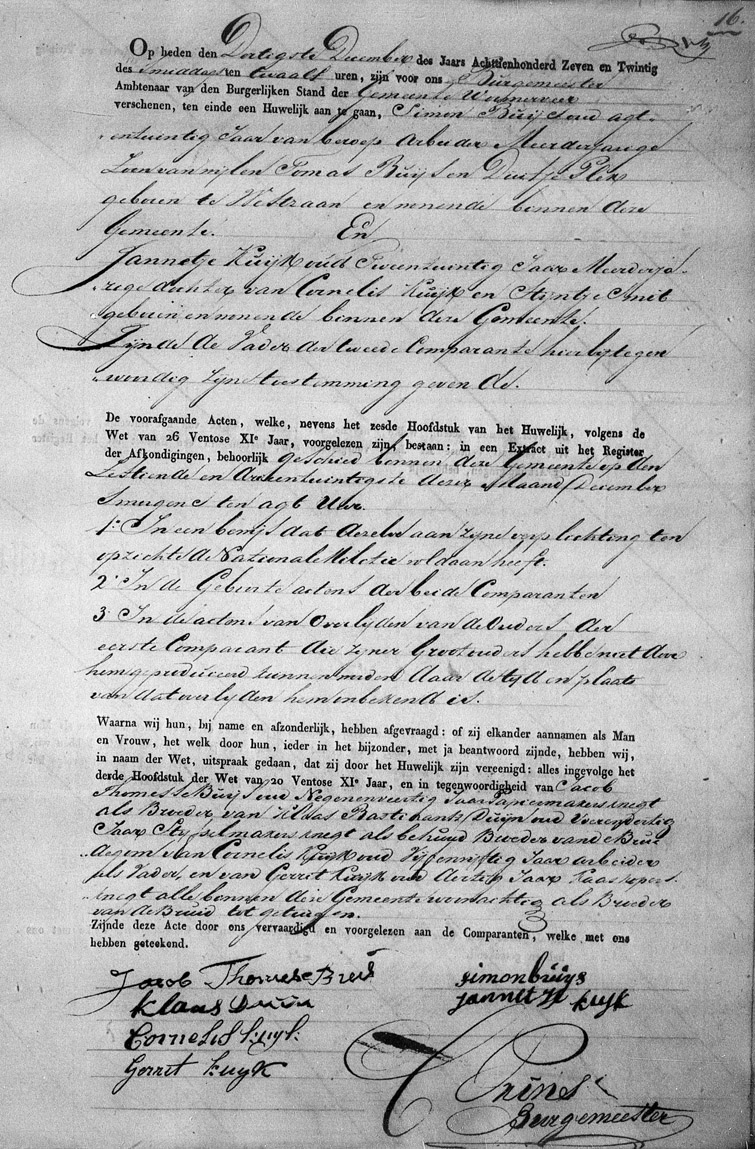 16.
Op heden den Dertigste December des Jaars Achttienhonderd Zeven en Twintig
des smiddags ten twaalf uren, zijn voor ons Burgemeester
Ambtenaar van den Burgerlijken Stand der Gemeente Wormerveer
verschenen, ten einde een Huwelijk aan te gaan, Simon Buijs oud agt-
entwintig Jaar van beroep Arbeider Meerderjarige
Zoon van wijlen Tomas Buijs en Dieuwtje
geboren te Westzaan en wonende binnen deze
Gemeente. En
Jannetje Kuijk oud Tweentwintig Jaar Meerderja-
rige dochter van Cornelis Kuijk en Stijntje Smit
geboren en wonende binnen deze Gemeente.
Zijnde de Vader der tweede Comparante hierbij tegen
woordig zijne toestemming gevende.
De voorafgaande Acten, welke, nevens het zesde Hoofdstuk van het Huwelijk, volgens de
Wet van 26 Ventose XIe Jaar, voorgelezen zijn, bestaan: in een Extract uit het Register
der Afkondigingen, behoorlijk geschied binnen deze Gemeente op den
Zestiende en Drieentwintigste dezer Maand December
Smorgens ten agt Uur.
1o. In een bewijs dat dezelve aan zijne verplichting ten
opzichte de Nationale Militie voldaan heeft.
2o In de Geboorte actens der beide Comparanten
3o In de actens van Overlijden van de Ouders der
eerste Comparant die zijner Grootouders hebbe niet door
hem geproduceerd kunnen worden daar de tijd en plaats
van dat overlijden hem onbekend is.
Waarna wij hun, bij name en afzonderlijk, hebben afgevraagd: of zij elkander aannamen als Man
en Vrouw, het welk door hun, ieder in het bijzonder, met ja beantwoord zijnde, hebben wij,
in naam der Wet, uitspraak gedaan, dat zij door het Huwelijk zijn vereenigd: alles ingevolge het
derde Hoofdstuk der Wet van 20 Ventose XIe Jaar, en in tegenwoordigheid van Jacob
Thomasse Buijs oud Negenenveertig Jaar Papiermakersknegt
als Broeder van Klaas Bastiaansz Duijn oud Vierendertig
Jaar Stijfselmakersknegt als behuwd Broeder van de Brui-
degom van Cornelis Kuijk oud Vijfenvijftig Jaar arbeider
als Vader, en van Gerrit Kuijk oud Dertig Jaar Kaaskopers
knegt alle binnen deze Gemeente woonachtig als Broeder
van de Bruid tot getuigen.
Zijnde deze Acte door ons vervaardigd en voorgelezen aan de Comparanten, welke met ons
hebben geteekend.
Jacob Thomasse Buis
simon buijs
Klaas Duin
jannetje kuyk
Cornelis kuyk
Gerrit kuyk
Prins
Burgemeester